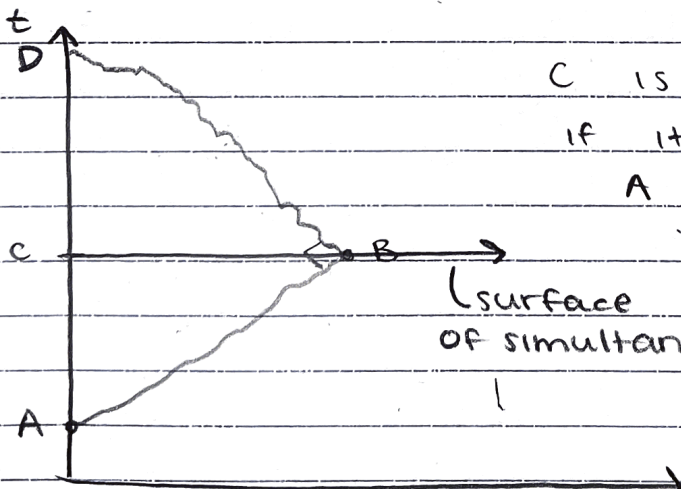 t
D
C is
if it
A
C
B
surface
of simultan
A